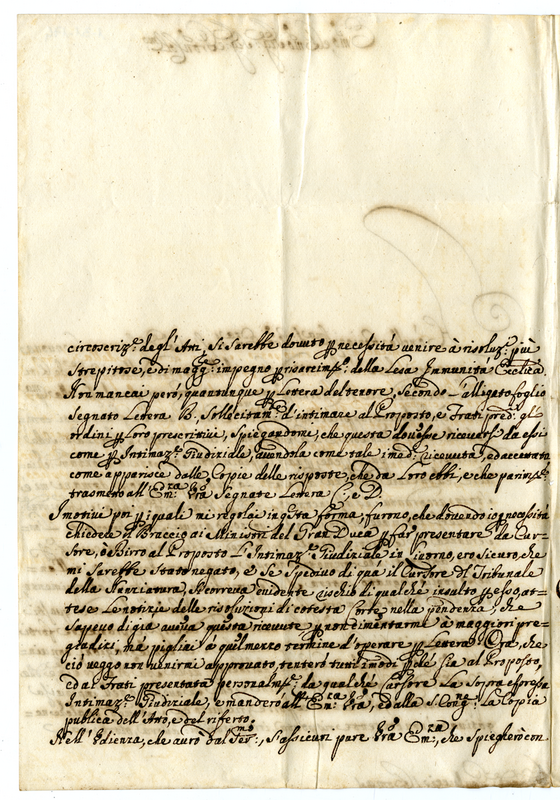 circoscriz.e degl' Atti, Si Sarebbe dovuto p necessità venire à risoluz.i più
Strepitose, e di magg.e impegno p risarcim.to della Lesa Immunità Eccl.ca
Non mancai però, quantunque p Lettera del tenore, Secondo L'alligato foglio
Segnato Lettera B. Sollecitam.te d'intimare al Proposto, e Frati pred.i gl'
ordini p Loro prescrittivi, Spiegandomi, che questa dovesse riceversi da essi
come p Intimaz.e Giudiziale, avendola come tale ricevuta, ed accettata
come apparisce dalle Copie delle risposte, che da Loro ebbi, e che parim.te
trasmetto all' Em.za V'ra Segnate Lettera C, e D.
I motivi poi p i quali mi regolai in q'sta forma, furono, che dovendo io p necessità
chiedere il Braccio ai Ministri del Gran Duca p far presentare da Cur-
sore, ò Birro al Proposto L'Intimaz.e Giudiziale in Livorno, ero Sicuro, che
mi Sarebbe Stato negato, e Se Spedivo di quà il Cursore del Tribunale
della Nunziatura, Si correva evidente rischio di qualche insulto p esso, at-
tese Le notizie delle risoluzioni di cotesta Corte nella pendenza, che
Sapevo di già aveva questa ricevute p non cimentarme à maggiori pre=
giudizi, mà pigliai à quel mezzo termine d'operare p Lettera. Ora, che
ciò veggo non venirmi approvato, tenterò tutti i modi p che Sia al Proposto,
ed ai Frati presentata personalm.te da qualche Cursore La Sopra espressa
Intimaz.e Giudiziale, e manderò all' Em.za V'ra, ed alla S. Cong.ne La Copia
publica dell' Atto, e del riferto.
Nell' Udienza, che aurò dal Ser.mo, S'assicuri pure V'ra Em.za, che Spiegherò con